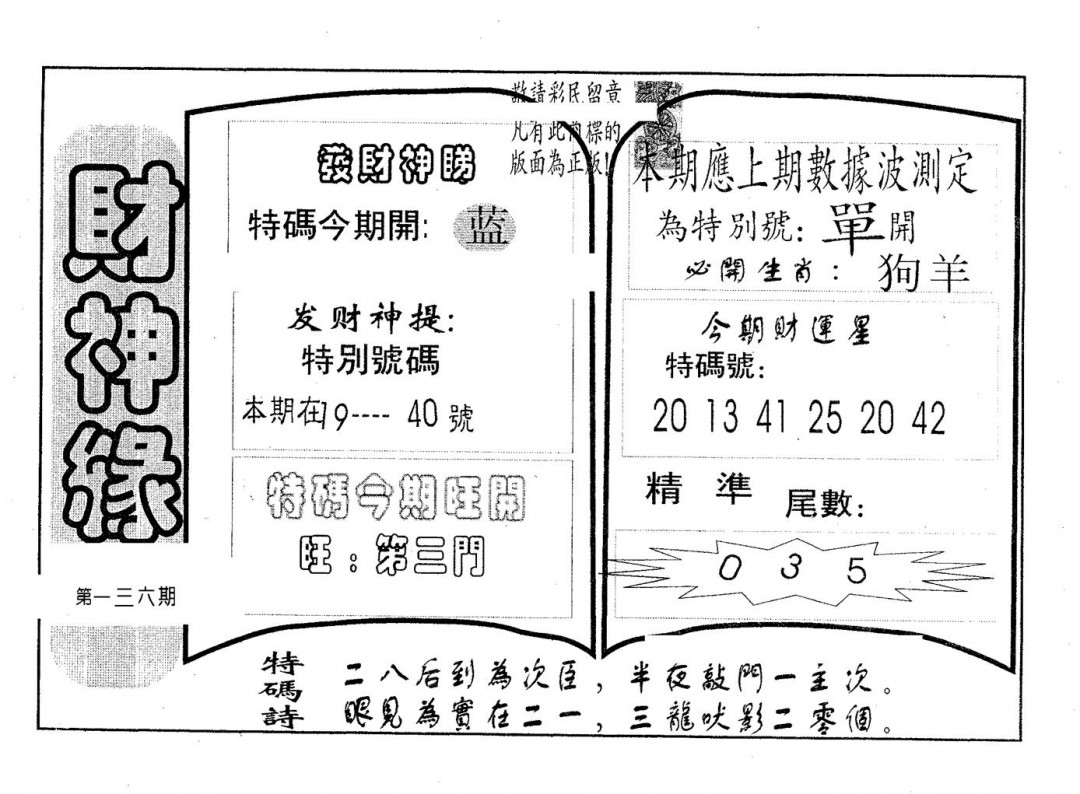 財神緣
第一三六期
敬請彩民留意
凡有此商標的
版面為正版!
發財神睇
特碼今期開: 蓝
发财神提:
特別號碼
本期在19---- 40號
特碼今期旺開
旺:第三門
本期應上期數據波測定
為特別號: 單開
必開生肖: 狗羊
今期財運星
特碼號:
20 13 41 25 20 42
精準 尾數:
0 3 5
特碼詩
二八后到為次臣,半夜敲門一主次。
眼見為實在二一,三龍吠影二零個。